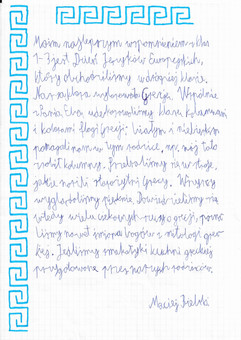 Moim najlepszym wspomnieniem z klas
1-3 jest Dzień Języków Europejskich,
który obchodziliśmy w drugiej klasie.
Nasza klasa wylosowała Grecję. Wspólnie
z Panią Elą udekorowaliśmy klasę kolumnami
i kolorami flagi Grecji: białym i niebieskim
pomagali nam w tym rodzice, np. mój tato
zrobił kolumny. Przebraliśmy się w stroje,
jakie nosili starożytni Grecy. Wszyscy
wyglądaliśmy pięknie. Dowiedzieliśmy się
wtedy wielu ciekawych rzeczy o Grecji, pozna-
liśmy nawet imiona bogów z mitologii grec-
kiej. Jedliśmy smakołyki kuchni greckiej
przygotowane przez naszych rodziców.
Maciej